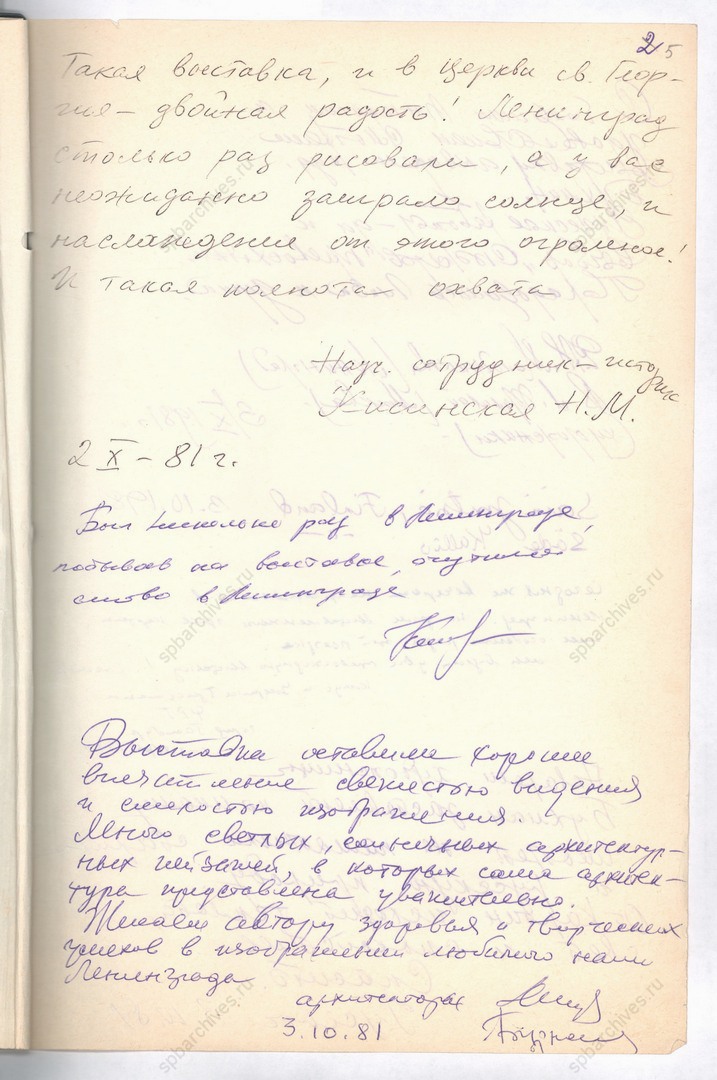 25
Такая выставка, и в церкви св. Геор-
гия – двойная радость! Ленинград
столько раз рисовали, а у вас
неожиданно заиграло солнце, и
наслаждение от этого огромное!
И такая полнота охвата
Науч. сотрудник – историк
Кисинская Н. М.
2 X – 81 г.
Был несколько раз в Ленинграде,
побывав на выставке, очутился
снова в Ленинграде
Выставка оставила хорошее
впечатление свежестью видения
и смелостью изображения.
Много светлых, солнечных архитектур-
ных пейзажей, в которых сама архитек-
тура представлена уважительно.
Желаем автору здоровья и творческих
успехов в изображении любимого нами
Ленинграда
архитекторы
3.10.81
spbarchives.ru
spbarchives.ru
spbarchives.ru
spbarchives.ru
spbarchives.ru
spbarchives.ru